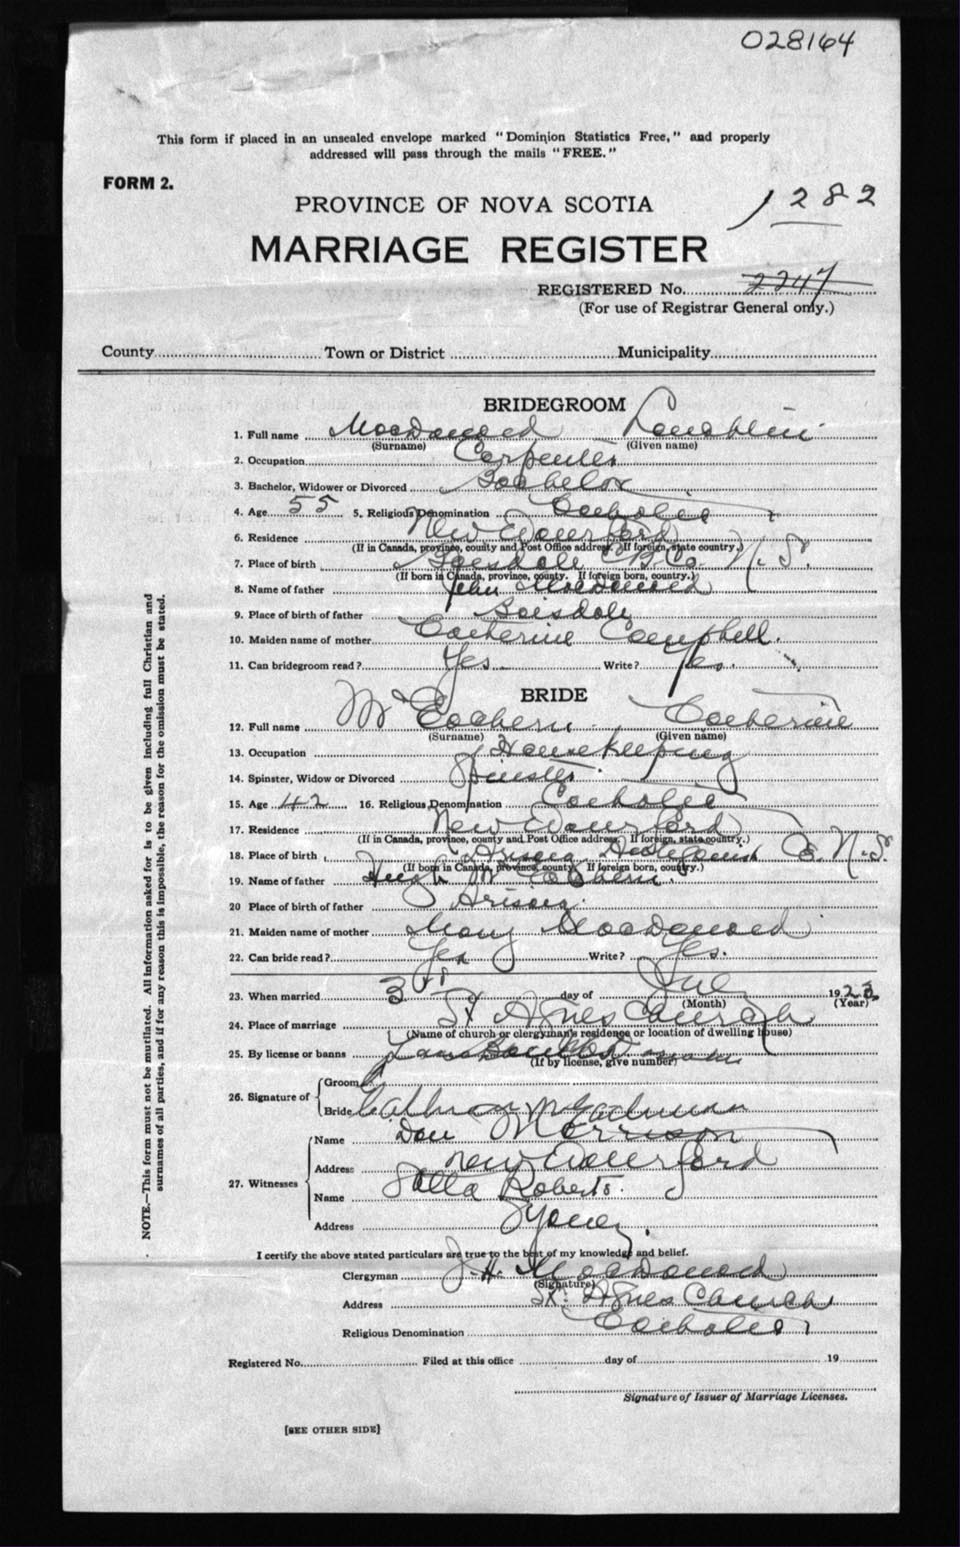 028164
This form if placed in an unsealed envelope marked "Dominion Statistics Free," and properly
addressed will pass through the mails "FREE."
FORM 2.
PROVINCE OF NOVA SCOTIA
1282
MARRIAGE REGISTER
REGISTERED No. 2247
(For use of Registrar General only.)
County Town or District Municipality
BRIDEGROOM
1. Full name MacDonald Lauchlin
(Surname) (Given name)
2. Occupation Carpenter
3. Bachelor, Widower or Divorced Bachelor
4. Age 55 5. Religious Denomination Catholic
6. Residence New Waterford
(If in Canada, province, county and Post Office address. If foreign, state country.)
7. Place of birth Boisdale C.B. Co. N.S.
(If born in Canada, province, county. If foreign born, country.)
8. Name of father John MacDonald
9. Place of birth of father Boisdale
10. Maiden name of mother Catherine Campbell.
11. Can bridegroom read? Yes Write? Yes.
BRIDE
12. Full name McEachern Catherine
(Surname) (Given name)
13. Occupation Housekeeping
14. Spinster, Widow or Divorced Spinster
15. Age 42 16. Religious Denomination Catholic
17. Residence New Waterford
(If in Canada, province, county and Post Office address. If foreign, state country.)
18. Place of birth Arisaig Antigonish Co. N.S.
(If born in Canada, province, county. If foreign born, country.)
19. Name of father Hugh McEachern
20 Place of birth of father Arisaig
21. Maiden name of mother Mary MacDonald
22. Can bride read? Yes Write? Yes.
23. When married 3rd day of 1923
(Month) (Year)
24. Place of marriage St Agnes Church
(Name of church or clergyman's residence or location of dwelling house)
25. By license or banns
(If by license, give number)
26. Signature of
Groom
Bride
27. Witnesses
Name Dan Morrison
Address New Waterford
Name Roberts.
Address Sydney.
I certify the above stated particulars are true to the best of my knowledge and belief.
Clergyman J. H. MacDonald
(Signature)
Address St. Agnes Church
Religious Denomination Catholic
Registered No. Filed at this office day of 19
Signature of Issuer of Marriage Licenses.
[SEE OTHER SIDE]
NOTE.—This form must not be mutilated. All information asked for is to be given including full Christian and
surnames of all parties, and if for any reason this is impossible, the reason for the omission must be stated.